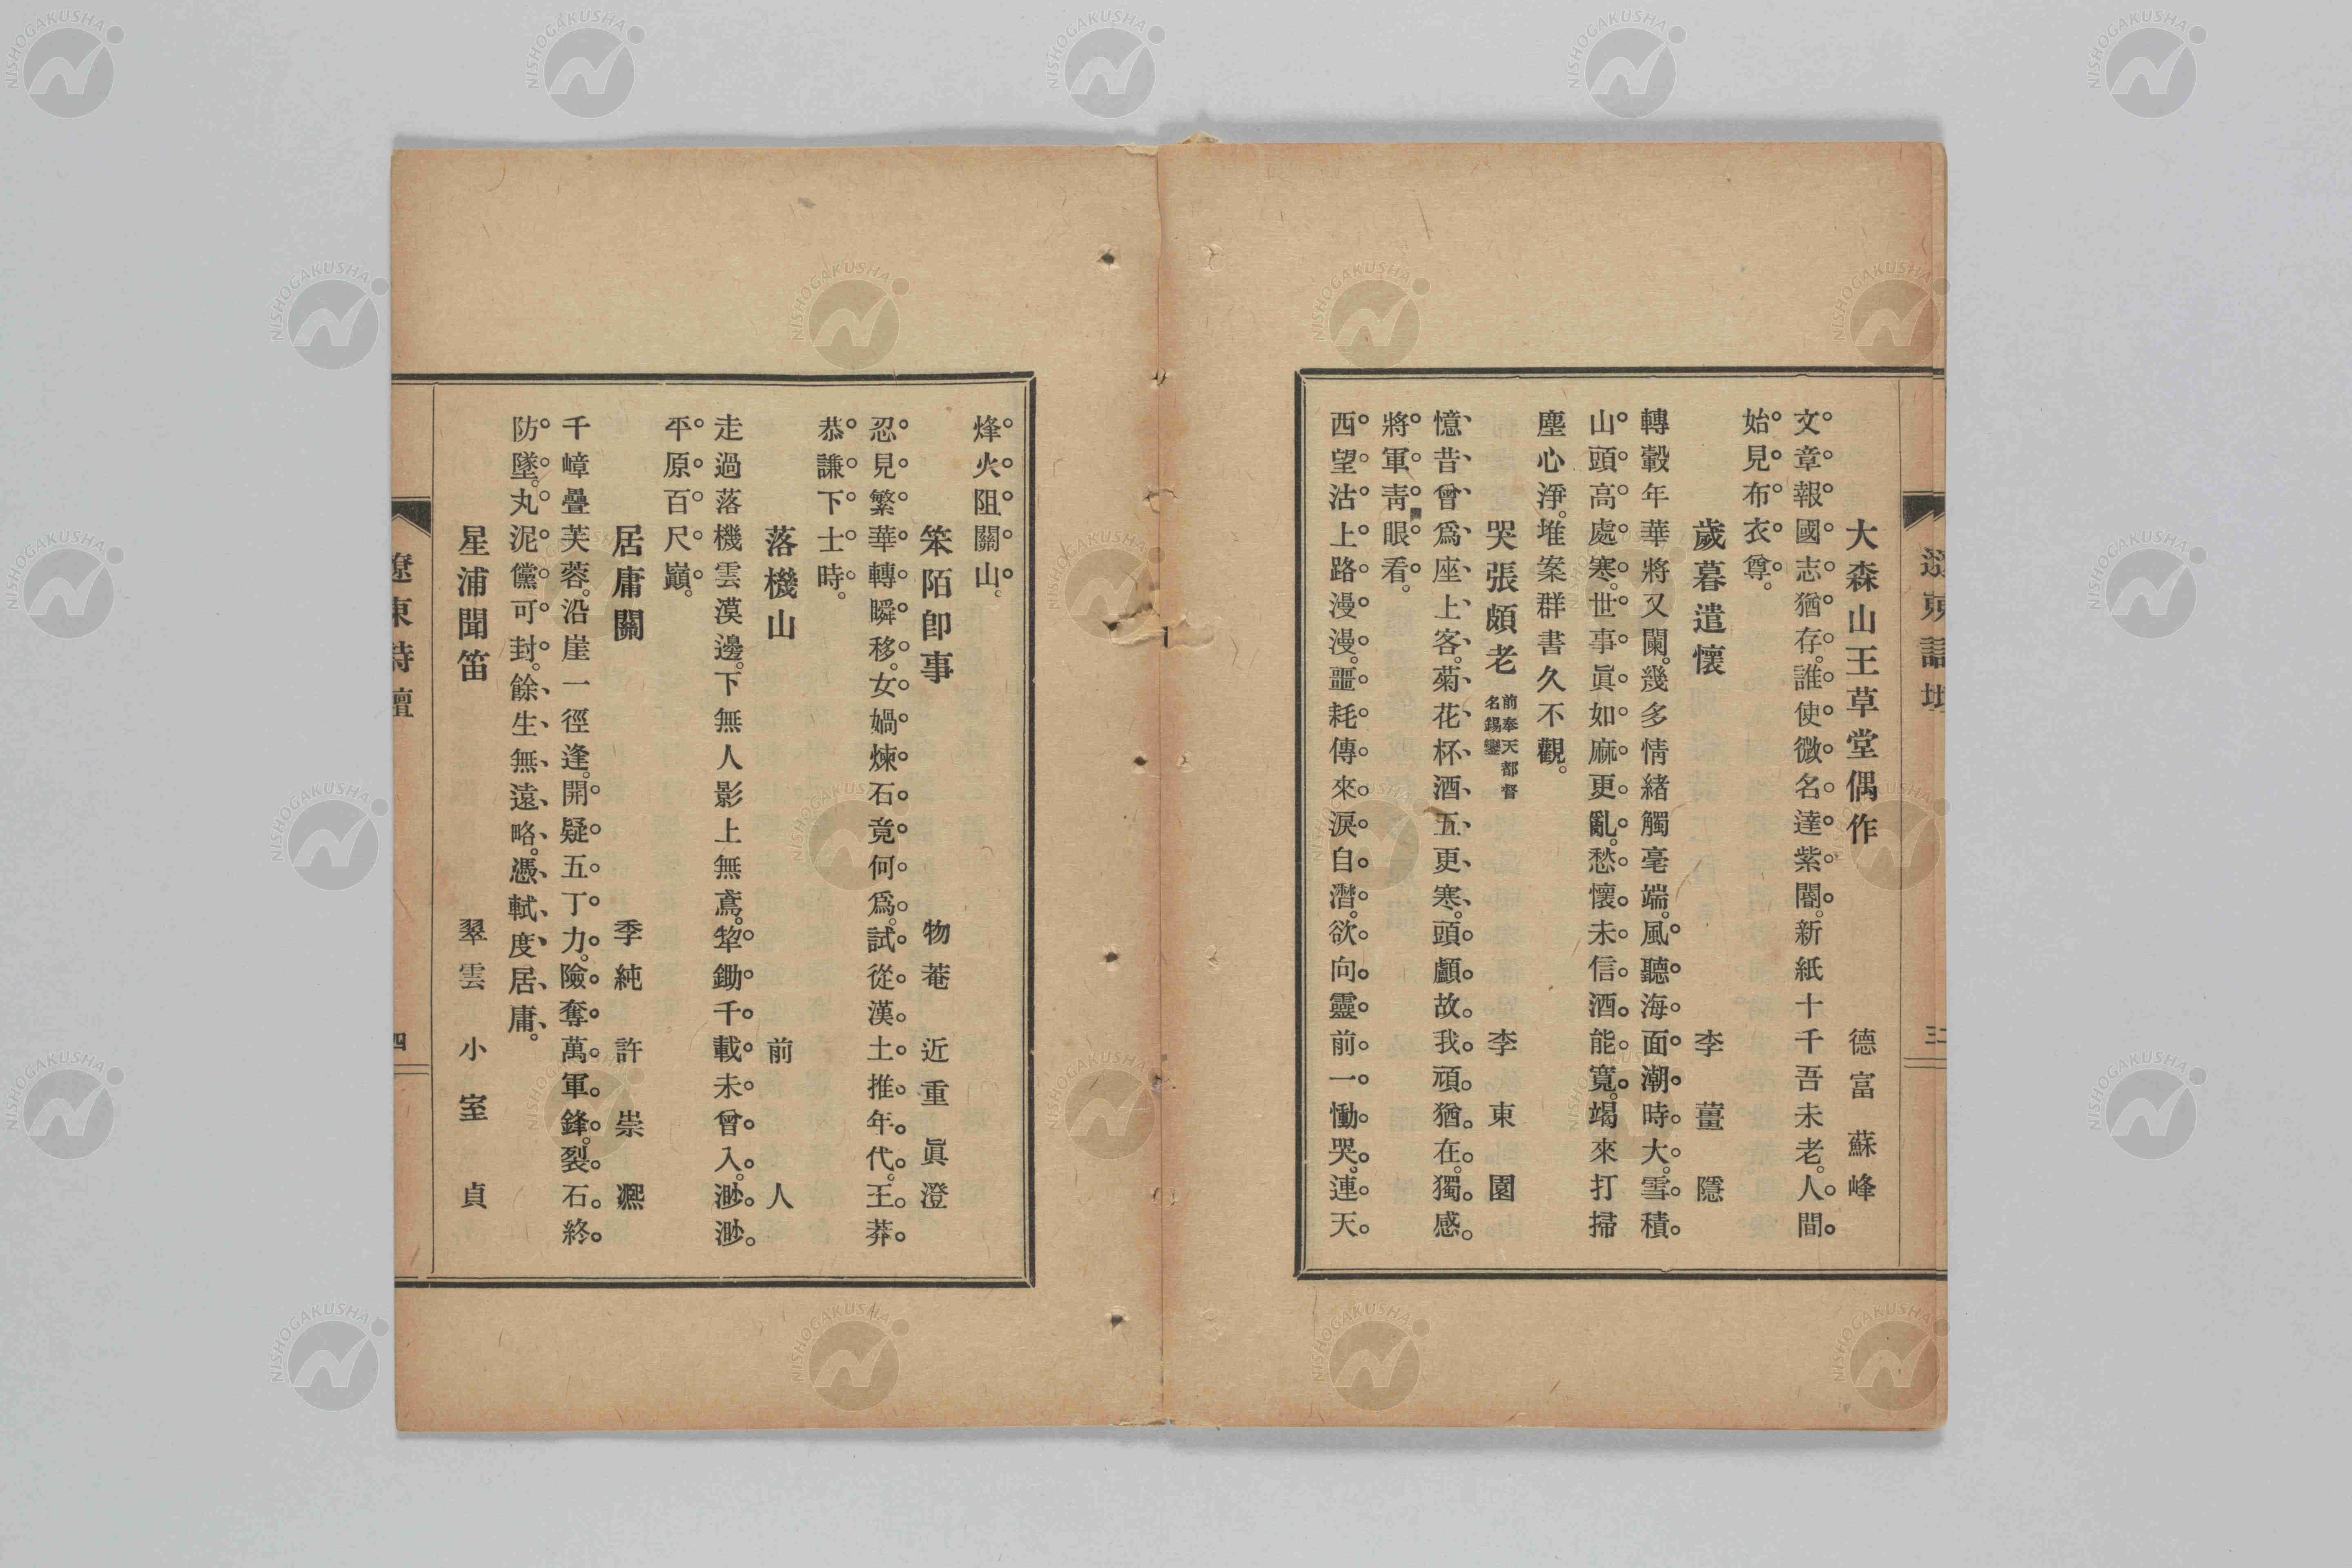 遼東詩壇
三
大森山王草堂偶作 德富蘇峰
文章報國志猶存。誰使微名達紫閽。新紙十千吾未老。人間
始見布衣尊。
歲暮遣懷 李薑隱
轉轂年華將又闌。幾多情緒觸毫端。風聽海面潮時大。雪積
山頭高處寒。世事眞如麻更亂。愁懷未信酒能寬。朅來打掃
塵心淨。堆案群書久不觀。
哭張頗老 前奉天都督名錫鑾 李東園
憶昔曾爲座上客。菊花杯酒五更寒。頭顱故我頑猶在。獨感
將軍靑眼看。
西望沽上路漫漫。噩耗傳來淚自潸。欲向靈前一慟哭。連天
烽火阻關山。
笨陌卽事 物菴 近重眞澄
忍見繁華轉瞬移。女媧煉石竟何爲。試從漢土推年代。王莽
恭謙下士時。
落機山 前人
走過落機雲漠邊。下無人影上無鳶。犂鋤千載未曾入。渺渺
平原百尺巓。
居庸關 季純 許崇凞
千嶂疊芙蓉。沿崖一徑逢。開疑五丁力。險奪萬軍鋒。裂石終
防墜。丸泥儻可封。餘生無遠略。憑軾度居庸。
星浦聞笛 翠雲 小室貞
遼東詩壇
四
NISHOGAKUSHA